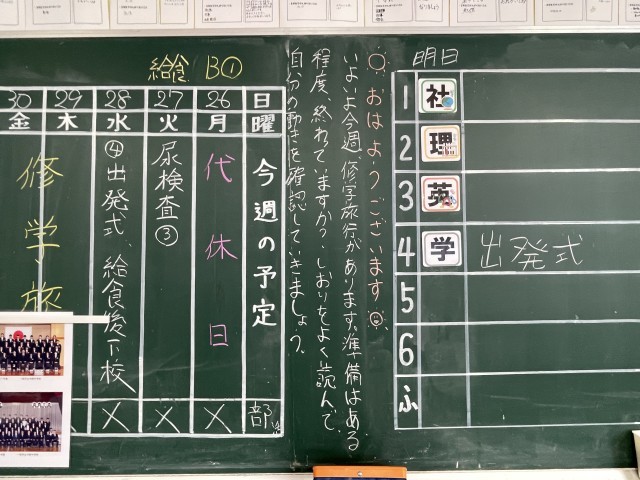 明日
1 社
2 理
3 英
4 学 出発式
5
6
ふ
おはようございます
いよいよ今週、修学旅行があります。準備はある
程度、終れていますか?しおりをよく読んで、
自分の動きを確認していきましょう。
給食 B①
今週の予定
日 曜 部活
26 月 代休日 ×
27 火 尿検査③ ×
28 水 ④出発式、給食後下校 ×
29 木
30 金
修学旅